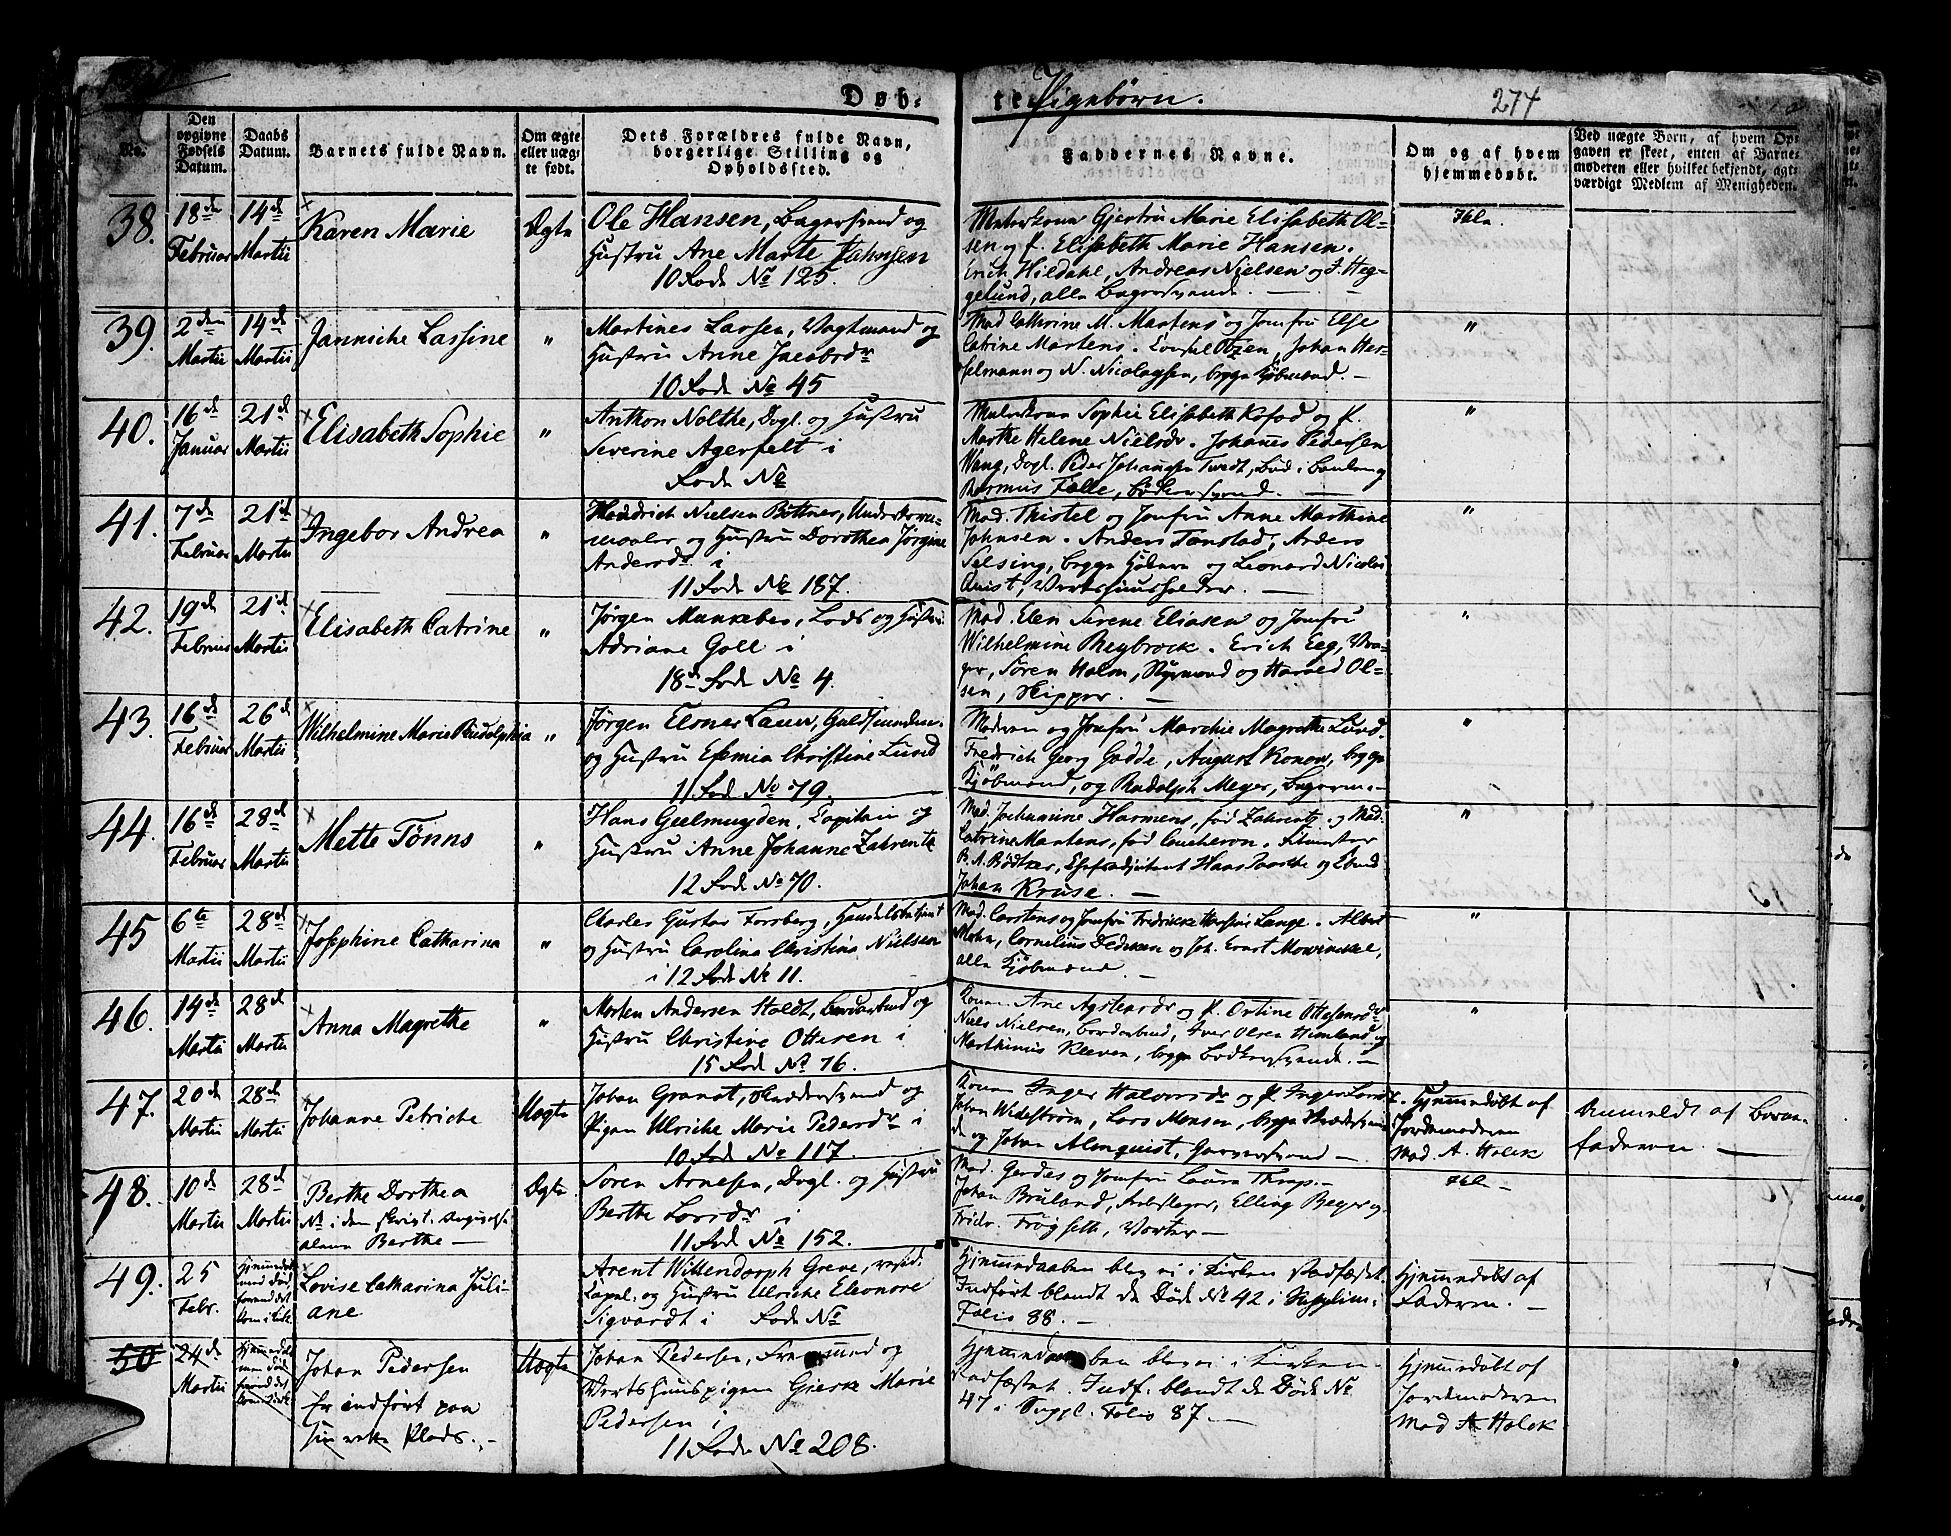 Døb-
te Pigebørn.
274
No.
Den opgivne Fødsels Datum.
Daabs Datum.
Barnets fulde Navn.
Om ægte eller uægte født.
Dets Forældres fulde Navn, borgerlige Stilling og Opholdssted.
Faddernes Navne.
Om og af hvem hjemmedøbt.
Ved uægte Børn, af hvem Opgaven er skeet, enten af Barnemoderen eller hvilket bekjendt, agtværdigt Medlem af Menigheden.
38. 18de Februar 14de Martii
Karen Marie
Ægte
Ole Hansen, Bagersvend og
Hustru Ane Marte Johnsen
10 Rode No 125.
Gjertru Marie Elisabeth Ol-
sen og P. Elisabeth Marie Hansen.
Erich Hildahl, Andreas Nielsen og J. Heg-
gelund, alle Bagersvende.
39. 2den Martii 14de Martii
Janniche Lassine
"
Martines Larsen, Vagtmand og
Hustru Anne Jacobsdr
10 Rode No 45
Mad Cathrine M. Martens og Jomfru Else
Catrine Martens. Johan Hes-
selmann og N. Nicolaysen, begge Kjøbmænd.
"
40. 16de Januar 21de Martii
Elisabeth Sophie
"
Anthon Nolthe, Dagl. og Hustru
Severine Agerfelt i
Rode No
Sophie Elisabeth Kofod og P.
Marthe Helene Nielsdr. Johanes Pedersen
Wang, Dagl. Peder Johannsen Tvedt, Bud i Banken og
Rasmus Falle, Bødkersvend.
"
41. 7de Februar 21de Martii
Ingebor Andrea
"
Hendrich Nielsen Bøttner, Underkorn-
maaler og Hustru Dorothea Jørgine
Andersdr i
11 Rode No 187.
Mad. Thistel og Jomfru Anne Marthine
Johnsen. Anders Tanstad, Anders
Selsing, begge og Leonard Nicolai
Quist, Vertshuusholder.
"
42. 19de Februar 21de Martii
Elisabeth Catrine
"
Jørgen Munkebee, Lods og Hustru
Adriane Goll i
18de Rode No 4.
Mad. Elen Serene Eliasen og Jomfru
Wilhelmine Reybrock. Erich Eeg, Vra-
ger, Søren Holm, Styrmand og Harald Ol-
sen, Skipper.
"
43. 16de Februar 26de Martii
Wilhelmine Marie Rudolphia
"
Jørgen Elsner Lauer, Guldsmed
og Hustru Efemia Christine Lund
11 Rode No 79.
og Jomfru Marchie Magrethe Lund.
Fredrich Georg Gødde, August Konow, begge
Kjøbmænd, og Rudolph Meyer, Bagerm.
"
44. 16de Februar 28de Martii
Mette Tønns
"
Hans Geelmuyden, Capitain og
Hustru Anne Johanne Zahrentz
12 Rode No 70.
Mad. Jochumine Harmens, fød Zahrentz og Mad.
Catrine Martens, fød
B. A. Bødtker, Hans og
Johan Kruse.
"
45 6te Martii 28de Martii
Josephine Catharina
"
Charles Gustav Forsberg, Handelsbetjent
og Hustru Carolina Christine Nielsen
i 12 Rode No 11.
Mad. Carstens og Jomfru Fredrikke Lange. Albert
Mohn, Cornelius Dedekam og Joh. Ernst Mowinckel,
alle Kjøbmænd.
"
46. 14de Martii 28de Martii
Anna Magrethe
"
Morten Andersen Holdt, og
Hustru Christine Ottesen i
15 Rode No 76.
Konen Ane og P. Ortine Ottesensdr
Niels Nielsen, Iver Olsen Himland og
Marthinus Kleven, begge Bødkersvende.
"
47. 20de Martii 28de Martii
Johanne Petriche
Uægte
Johan Granat, Skræddersvend og
Pigen Ulriche Marie Pedersdr i
10 Rode No 117.
Konen Inger Halvorsdr og P. Inger
Johan Widestrøm, Lars Monsen, begge
og Johan Almquist, Garversvend
Hjemmedøbt af
Jordemoderen
Mad. A. Holck
Anmeldt af Barne-
faderen.
48. 10de Martii 28de Martii
Berthe Dorthea
NB i den skrivt. Angivelse
alene Berthe
Ægte
Søren Arnesen, Dagl. og Hustru
Berthe Larsdr i
11 Rode No 152.
Mad. Gerdes og Jomfru Laura Throp.
Johan Bruland, Elling Beyer og
Fridr. Frøgseth, Vægter
49. 25 Febr.
Lovise Catharina Juli-
ane
Arent Wittendorph Greve, resid.
Capel. og Hustru Ulriche Eleonore
Sigvardt i Rode No
Hjemmedaaben blev ei i Kirken stadfæstet.
Indført blandt de Døde No 42 i Supplim.
Folio 88.
Hjemmedøbt af
Faderen.
50 24de Martii
Johan Pedersen
Er indført paa
sin rette Plads.
Uægte
Johan Pedersen, og
Vertshuuspigen Gjerke Marie
Pedersen i
11 Rode No 208.
Hjemmedaaben blev ei i Kirken
stadfæstet. Indf. blandt de Døde No
47 i Suppl. Folio 87.
Hjemmedøbt af
Jordemoderen
Mad A Holck